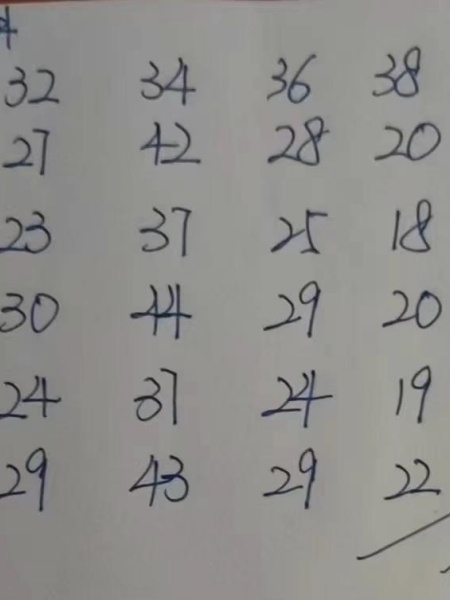 32 34 36 38
27 42 28 20
23 37 25 18
30 44 29 20
24 37 24 19
29 43 29 22